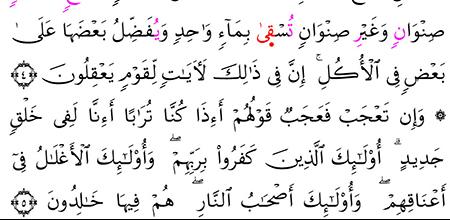 صِنْوَانٍ وَغَيْرِ صِنْوَانٍ تُسْقِىٰ بِمَآءٍ وَٰحِدٍ وَيُفَضِّلُ بَعْضَهَا عَلَىٰ
بَعْضٍ فِى ٱلْأُكُلِ ۚ إِنَّ فِى ذَٰلِكَ لَأٓيَٰتٍ لِّقَوْمٍ يَعْقِلُونَ ﴿٤﴾
۞ وَإِن تَعْجَبْ فَعَجَبٌ قَوْلُهُمْ أَءِذَا كُنَّا تُرَٰبًا أَءِنَّا لَفِى خَلْقٍ
جَدِيدٍ ۗ أُو۟لَٰٓئِكَ ٱلَّذِينَ كَفَرُوا۟ بِرَبِّهِمْ ۖ وَأُو۟لَٰٓئِكَ ٱلْأَغْلَٰلُ فِىٓ
أَعْنَاقِهِمْ ۖ وَأُو۟لَٰٓئِكَ أَصْحَٰبُ ٱلنَّارِ ۖ هُمْ فِيهَا خَٰلِدُونَ ﴿٥﴾